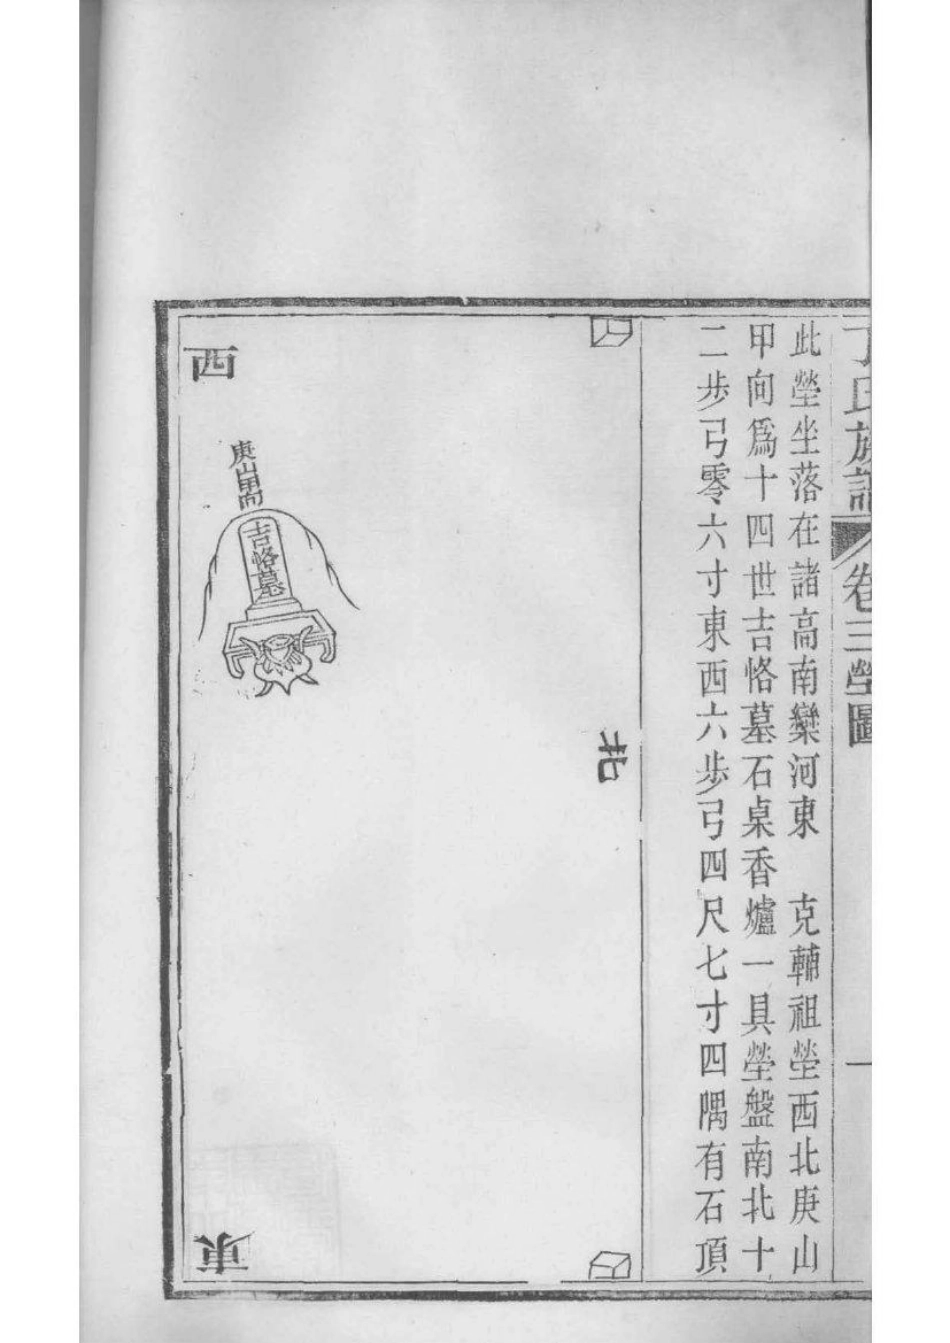 丁氏族譜 卷三塋圖 一
此塋坐落在諸高南欒河東 克輔祖塋西北庚山
甲向爲十四世吉恪墓石桌香爐一具塋盤南北十
二步弓零六寸東西六步弓四尺七寸四隅有石頂
北
西
庚山甲向
吉恪墓
東